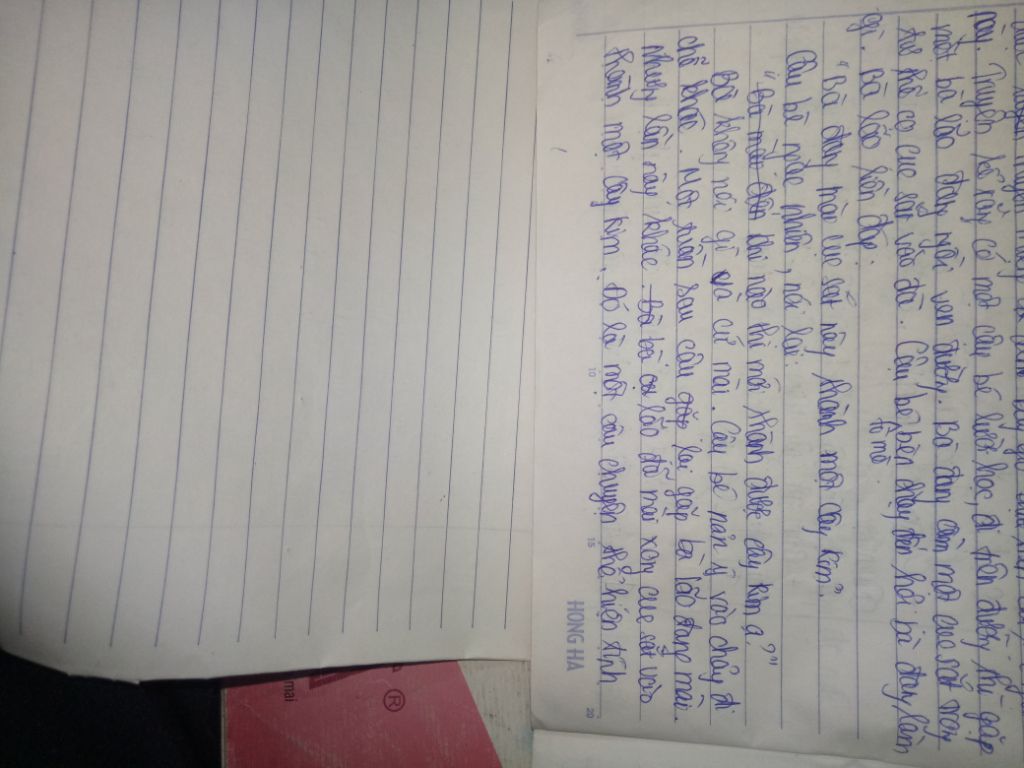 này. Truyện kể rằng có một cậu bé lười học, đi trên đường thì gặp
một bà lão đang ngồi ven đường. Bà đang cầm một cục sắt
cọ cục sắt vào đá. Cậu bé bèn chạy đến hỏi bà đang làm
tò mò
gì. Bà lão liền đáp:
"Bà đang mài cục sắt này thành một cây kim".
Cậu bé ngạc nhiên, nói lại:
"Bà mài đến khi nào thì mới thành được cây kim ạ?"
Bà không nói gì và cứ mài. Cậu bé nản ý và chạy đi
chỗ khác. Một tuần sau cậu lại gặp bà lão đang mài.
Nhưng lần này khác. bà lão đó mài xong cục sắt vào
thành một cây kim. Đó là một câu chuyện thể hiện tính
HONG HA
10
15
20
mai
®